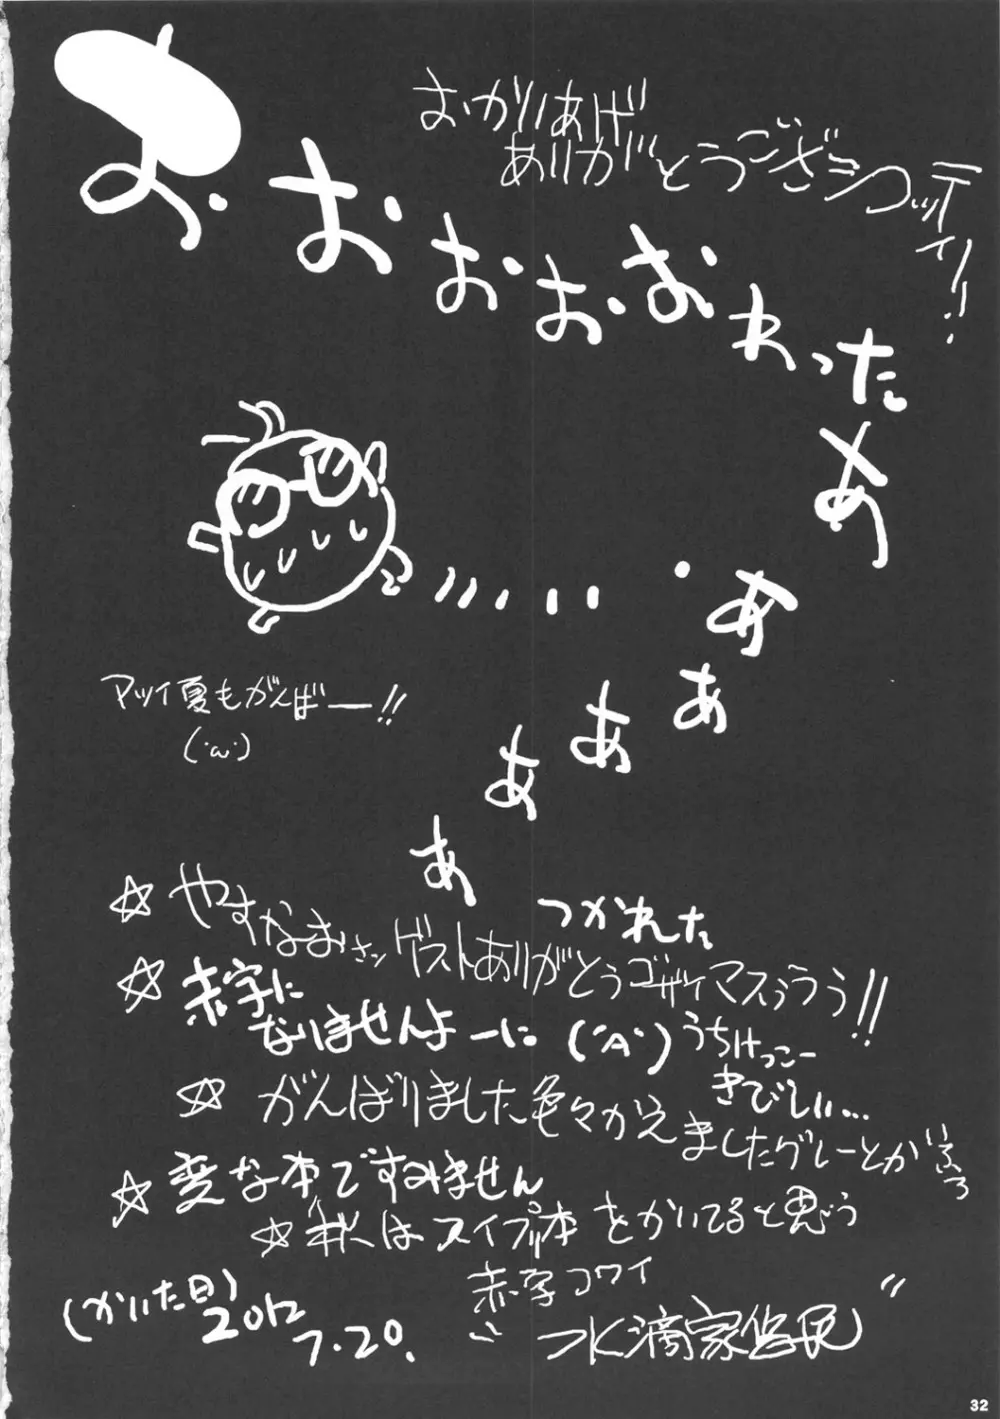 おかいあげ
ありがとうござシコッティ!!
お・おおおおわった
あ
あ
あ
あ
あ
あ
アツイ夏もがんばー!!
(・ω・)
つかれた
☆やすなおさんゲストありがとうゴザイマスぅうぅ!!
☆赤字に
なりませんよーに(´A`)うちけっこー
きびしい...
☆がんばりました色々かえましたグレーとか
☆変な本ですみません
☆秋はスイプリ本をかいてると思う
赤字コワイ
(かいた日)
2012
7.20.
水滴家
32